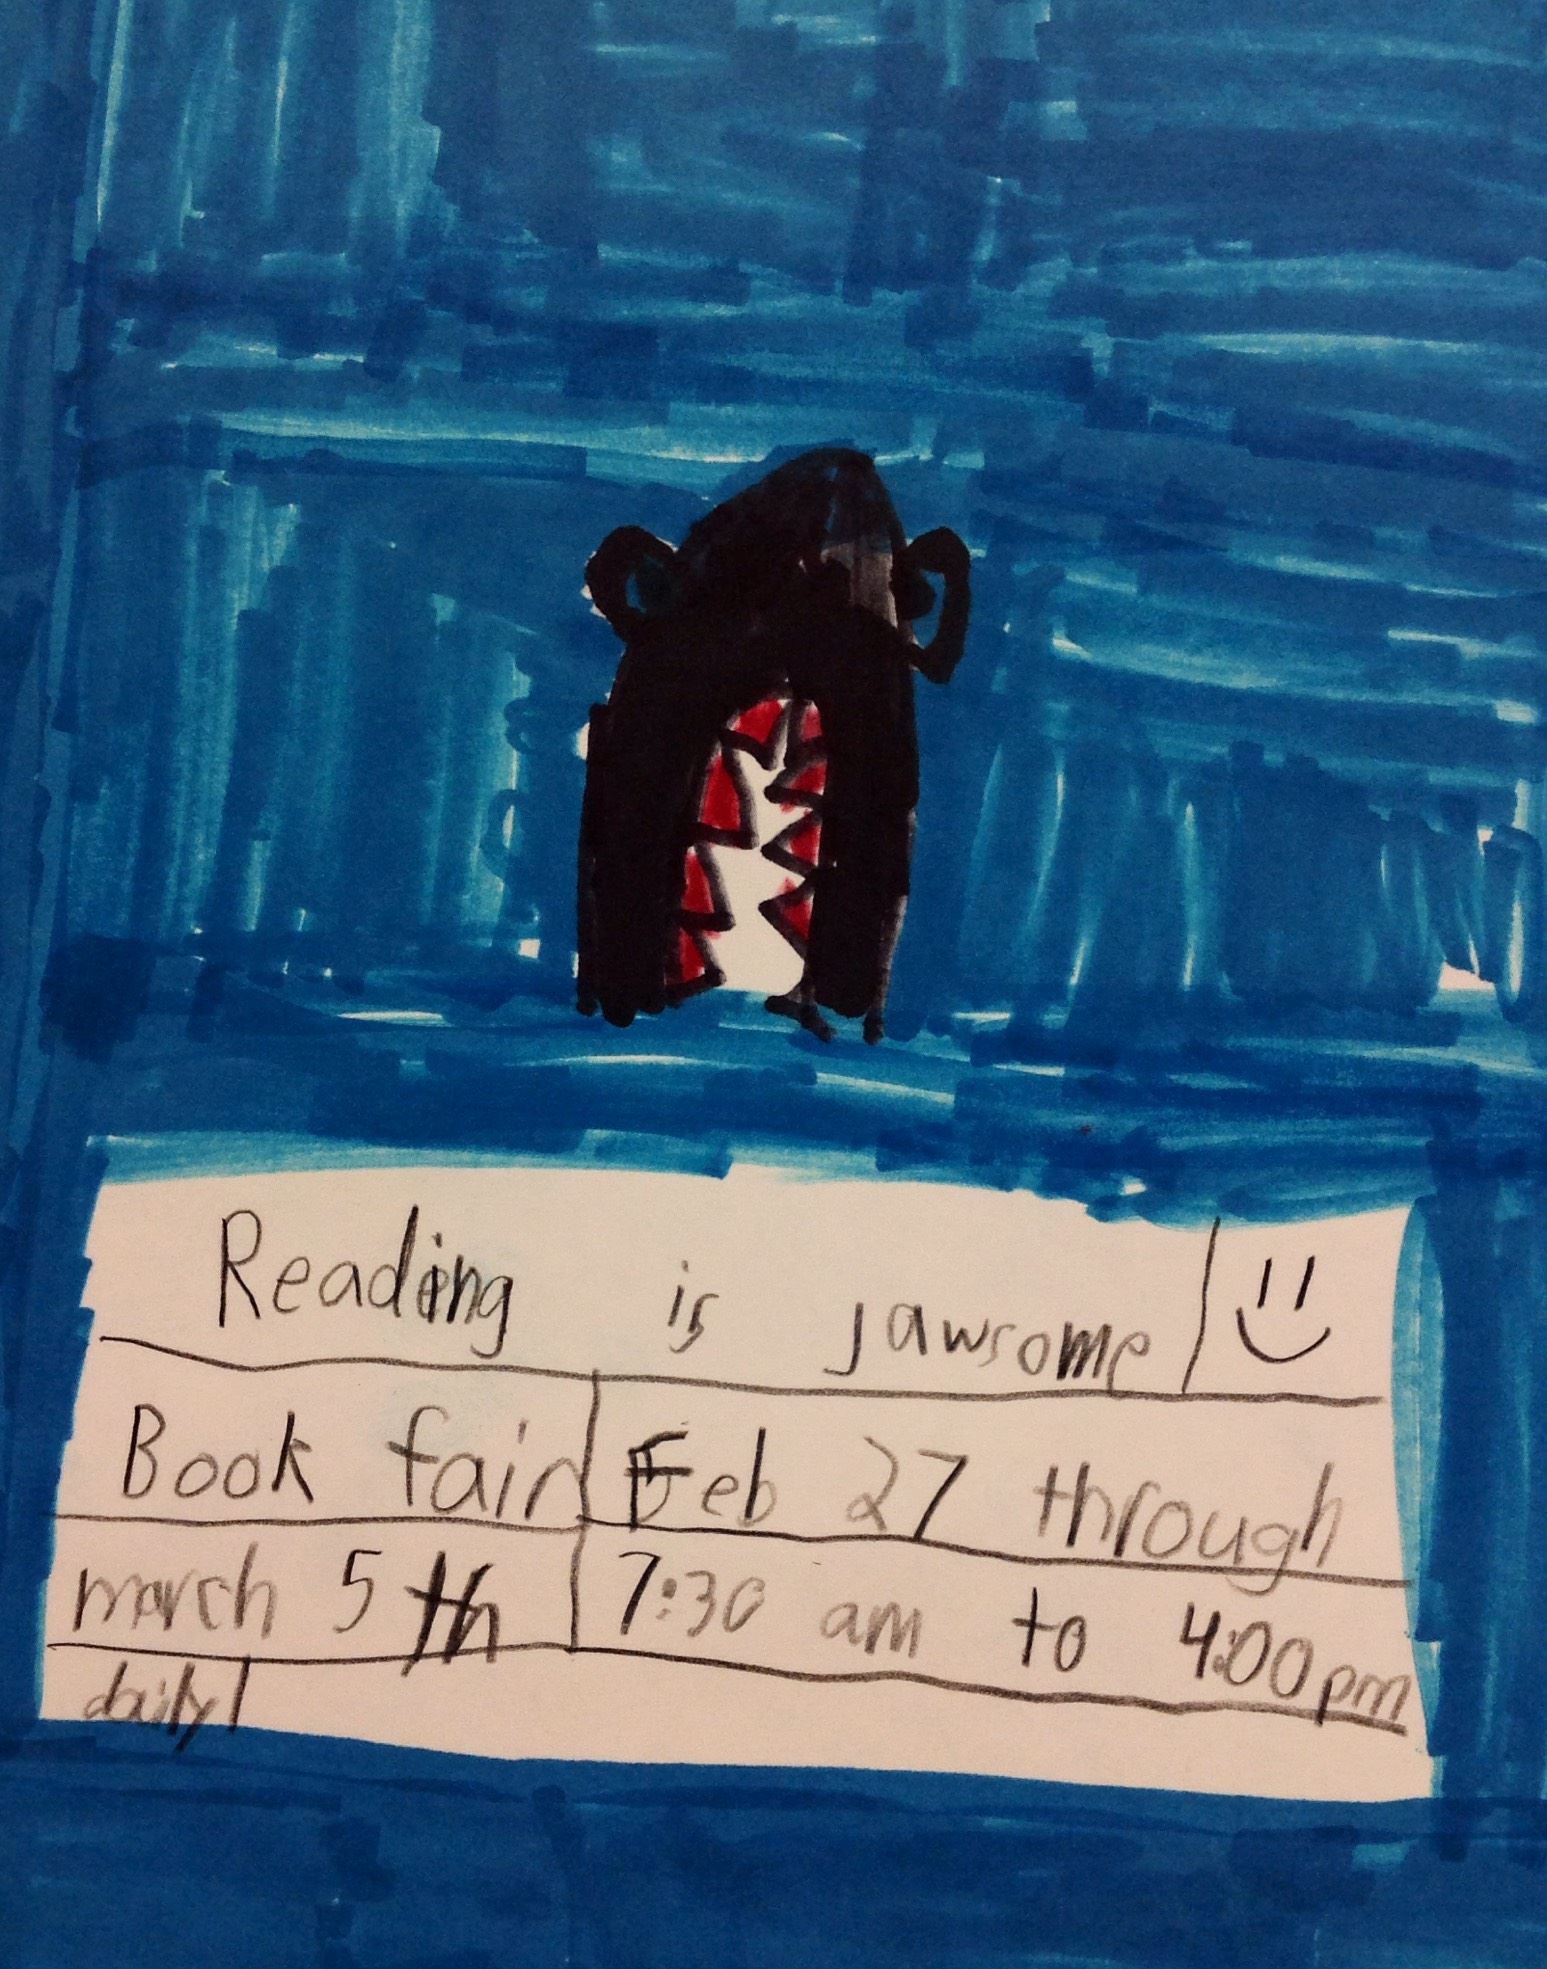 Reading is jawsome
Book fair Feb 27 through
march 5th 7:30 am to 4:00pm
daily